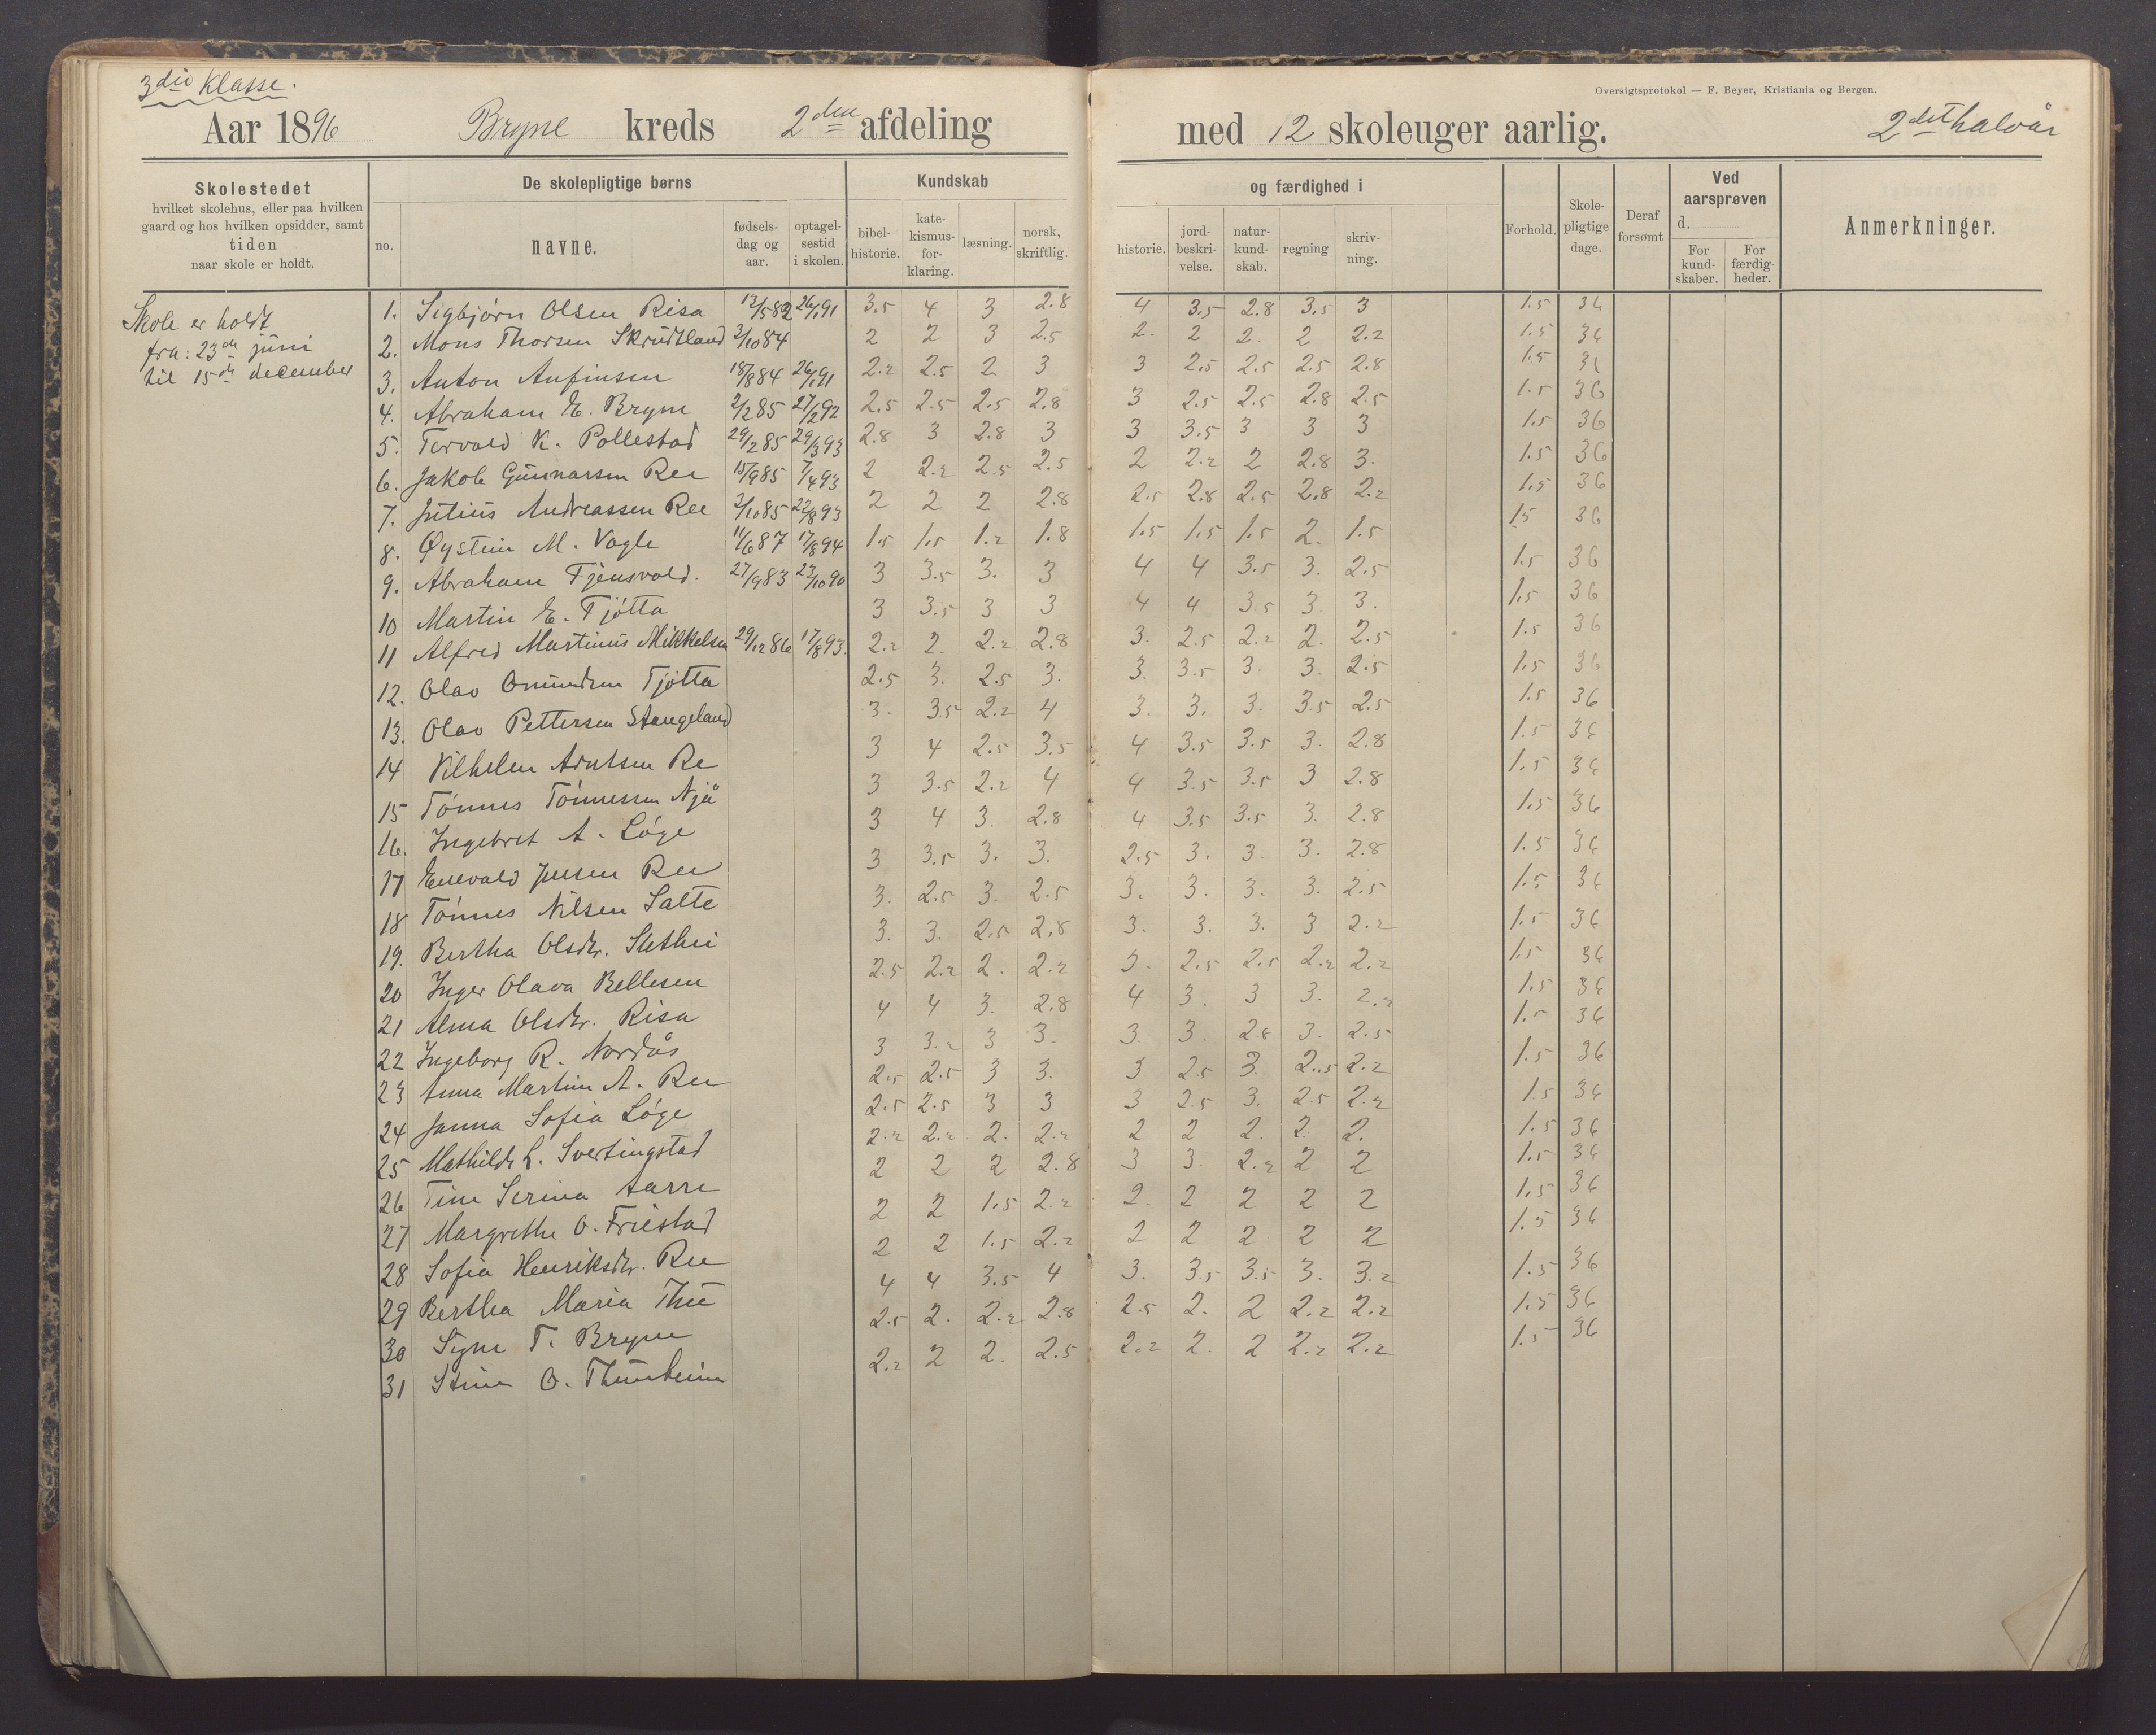 3die Klasse.
Oversigtsprotokol — F. Beyer, Kristiania og Bergen.
Aar 1896 Bryne kreds 2den afdeling med 12 skoleuger aarlig. 2det halvår
Skolestedet
hvilket skolehus, eller paa hvilken
gaard og hos hvilken opsidder, samt
tiden
naar skole er holdt.
De skolepligtige børns
no.
navne.
fødsels-
dag og
aar.
optagel-
sestid
i skolen.
Kundskab
bibel-
historie.
kate-
kismus-
for-
klaring.
læsning.
norsk,
skriftlig.
og færdighed i
historie.
jord-
beskri-
velse.
natur-
kund-
skab.
regning
skriv-
ning.
Forhold.
Skole-
pligtige
dage.
Deraf
forsømt
Ved
aarsprøven
d.
For
kund-
skaber.
For
færdig-
heder.
Anmerkninger.
Skole er holdt
fra: 23de juni
til 15de december
1. Sigbjørn Olsen Risa 12/5 82 26/1 91 3.5 4 3 2.8 4 3.5 2.8 3.5 3 1.5 36
2. Mons Thorsen Skrudtland 2/10 84 2 2 3 2.5 2. 2 2. 2 2.2 1.5 36
3. Anton Anfinsen 18/8 84 26/1 91 2.2 2.5 2 3 3 2.5 2.5 2.5 2.8 1.5 36
4. Abraham E. Bryne 2/2 85 27/2 92 2.5 2.5 2.5 2.8 3 2.5 2.5 2.8 2.5 1.5 36
5. Torvald K. Pollestad 29/2 85 29/3 93 2.8 3 2.8 3 3 3.5 3 3 3 1.5 36
6. Jakob Gunnarsen Ree 15/9 85 7/4 93 2 2.2 2.5 2.5 2 2.2 2 2.8 3. 1.5 36
7. Julius Andreassen Ree 2/10 85 22/8 93 2 2 2 2.8 2.5 2.8 2.5 2.8 2.2 1.5 36
8. Øystein M. Vagle 11/6 87 17/8 94 1.5 1.5 1.2 1.8 1.5 1.5 1.5 2. 1.5 1.5 36
9. Abraham Fjensvold. 27/9 83 23/10 90 3 3.5 3. 3 4 4 3.5 3. 2.5 1.5 36
10 Martin E. Tjøtta 3 3.5 3 3 4 4 3.5 3. 3. 1.5 36
11 Alfred Martinus Mikkelsen 29/12 86 17/8 93. 2.2 2. 2.2 2.8 3. 2.5 2.2 2. 2.5 1.5 36
12. Olav Omundsen Tjøtta 2.5 3. 2.5 3. 3. 3.5 3. 3. 2.5 1.5 36
13. Olav Pettersen Stangeland 3. 3.5 2.2 4 3. 3. 3. 3.5 2.5 1.5 36
14 Vilhelm Arntsen Re 3 4 2.5 3.5 4 3.5 3.5 3. 2.8 1.5 36
15 Tønnes Tønnessen Njå 3 3.5 2.2 4 4 3.5 3.5 3 2.8 1.5 36
16. Ingebret A. Løge 3 4 3. 2.8 4 3.5 3.5 3. 2.8 1.5 36
17 Enevald Jensen Ree 3 3.5 3. 3. 2.5 3. 3. 3. 2.8 1.5 36
18 Tønnes Nilsen Salte 3. 2.5 3. 2.5 3. 3. 3. 3. 2.5 1.5 36
19. Bertha Olsdtr. 3. 3. 2.5 2.8 3. 3. 3. 3 2.2 1.5 36
20 Inger Olava Bellesen 2.5 2.2 2. 2.2 3. 2.5 2.5 2.2 2.2 1.5 36
21 Alma Olsdtr. Risa 4 4 3. 2.8 4 3. 3 3. 2.2 1.5 36
22 Ingeborg R. Nordås 3 3.2 3 3. 3. 3. 2.8 3. 2.5 1.5 36
23 Anna Martine A. Ree 2.5 2.5 3 3. 3 2.5 3. 2.5 2.2 1.5 36
24 Janna Sofia Løge 2.5 2.5 3 3 3 2.5 3. 2.5 2.2 1.5 36
25 Mathilde L. Svertingstad 2.2 2.2 2. 2.2 2 2 2. 2. 2. 1.5 36
26 Tine Serina Aarre 2 2 2 2.8 3 3. 2.2 2 2 1.5 36
27 Margrethe O. Friestad 2 2 1.5 2.2 2. 2 2 2 2 1.5 36
28 Sofia Henriksdtr. Ree 2 2 1.5 2.2 2 2 2 2 2 1.5 36
29 Bertha Maria Thu 4 4 3.5 4 3. 3.5 3.5 3. 3.2 1.5 36
30 Signe T. Bryne 2.5 2. 2.2 2.8 2.5 2. 2 2.2 2.2 1.5 36
31 Stine O. Thunheim 2.2 2 2. 2.5 2.2 2. 2 2.2 2.2 1.5 36